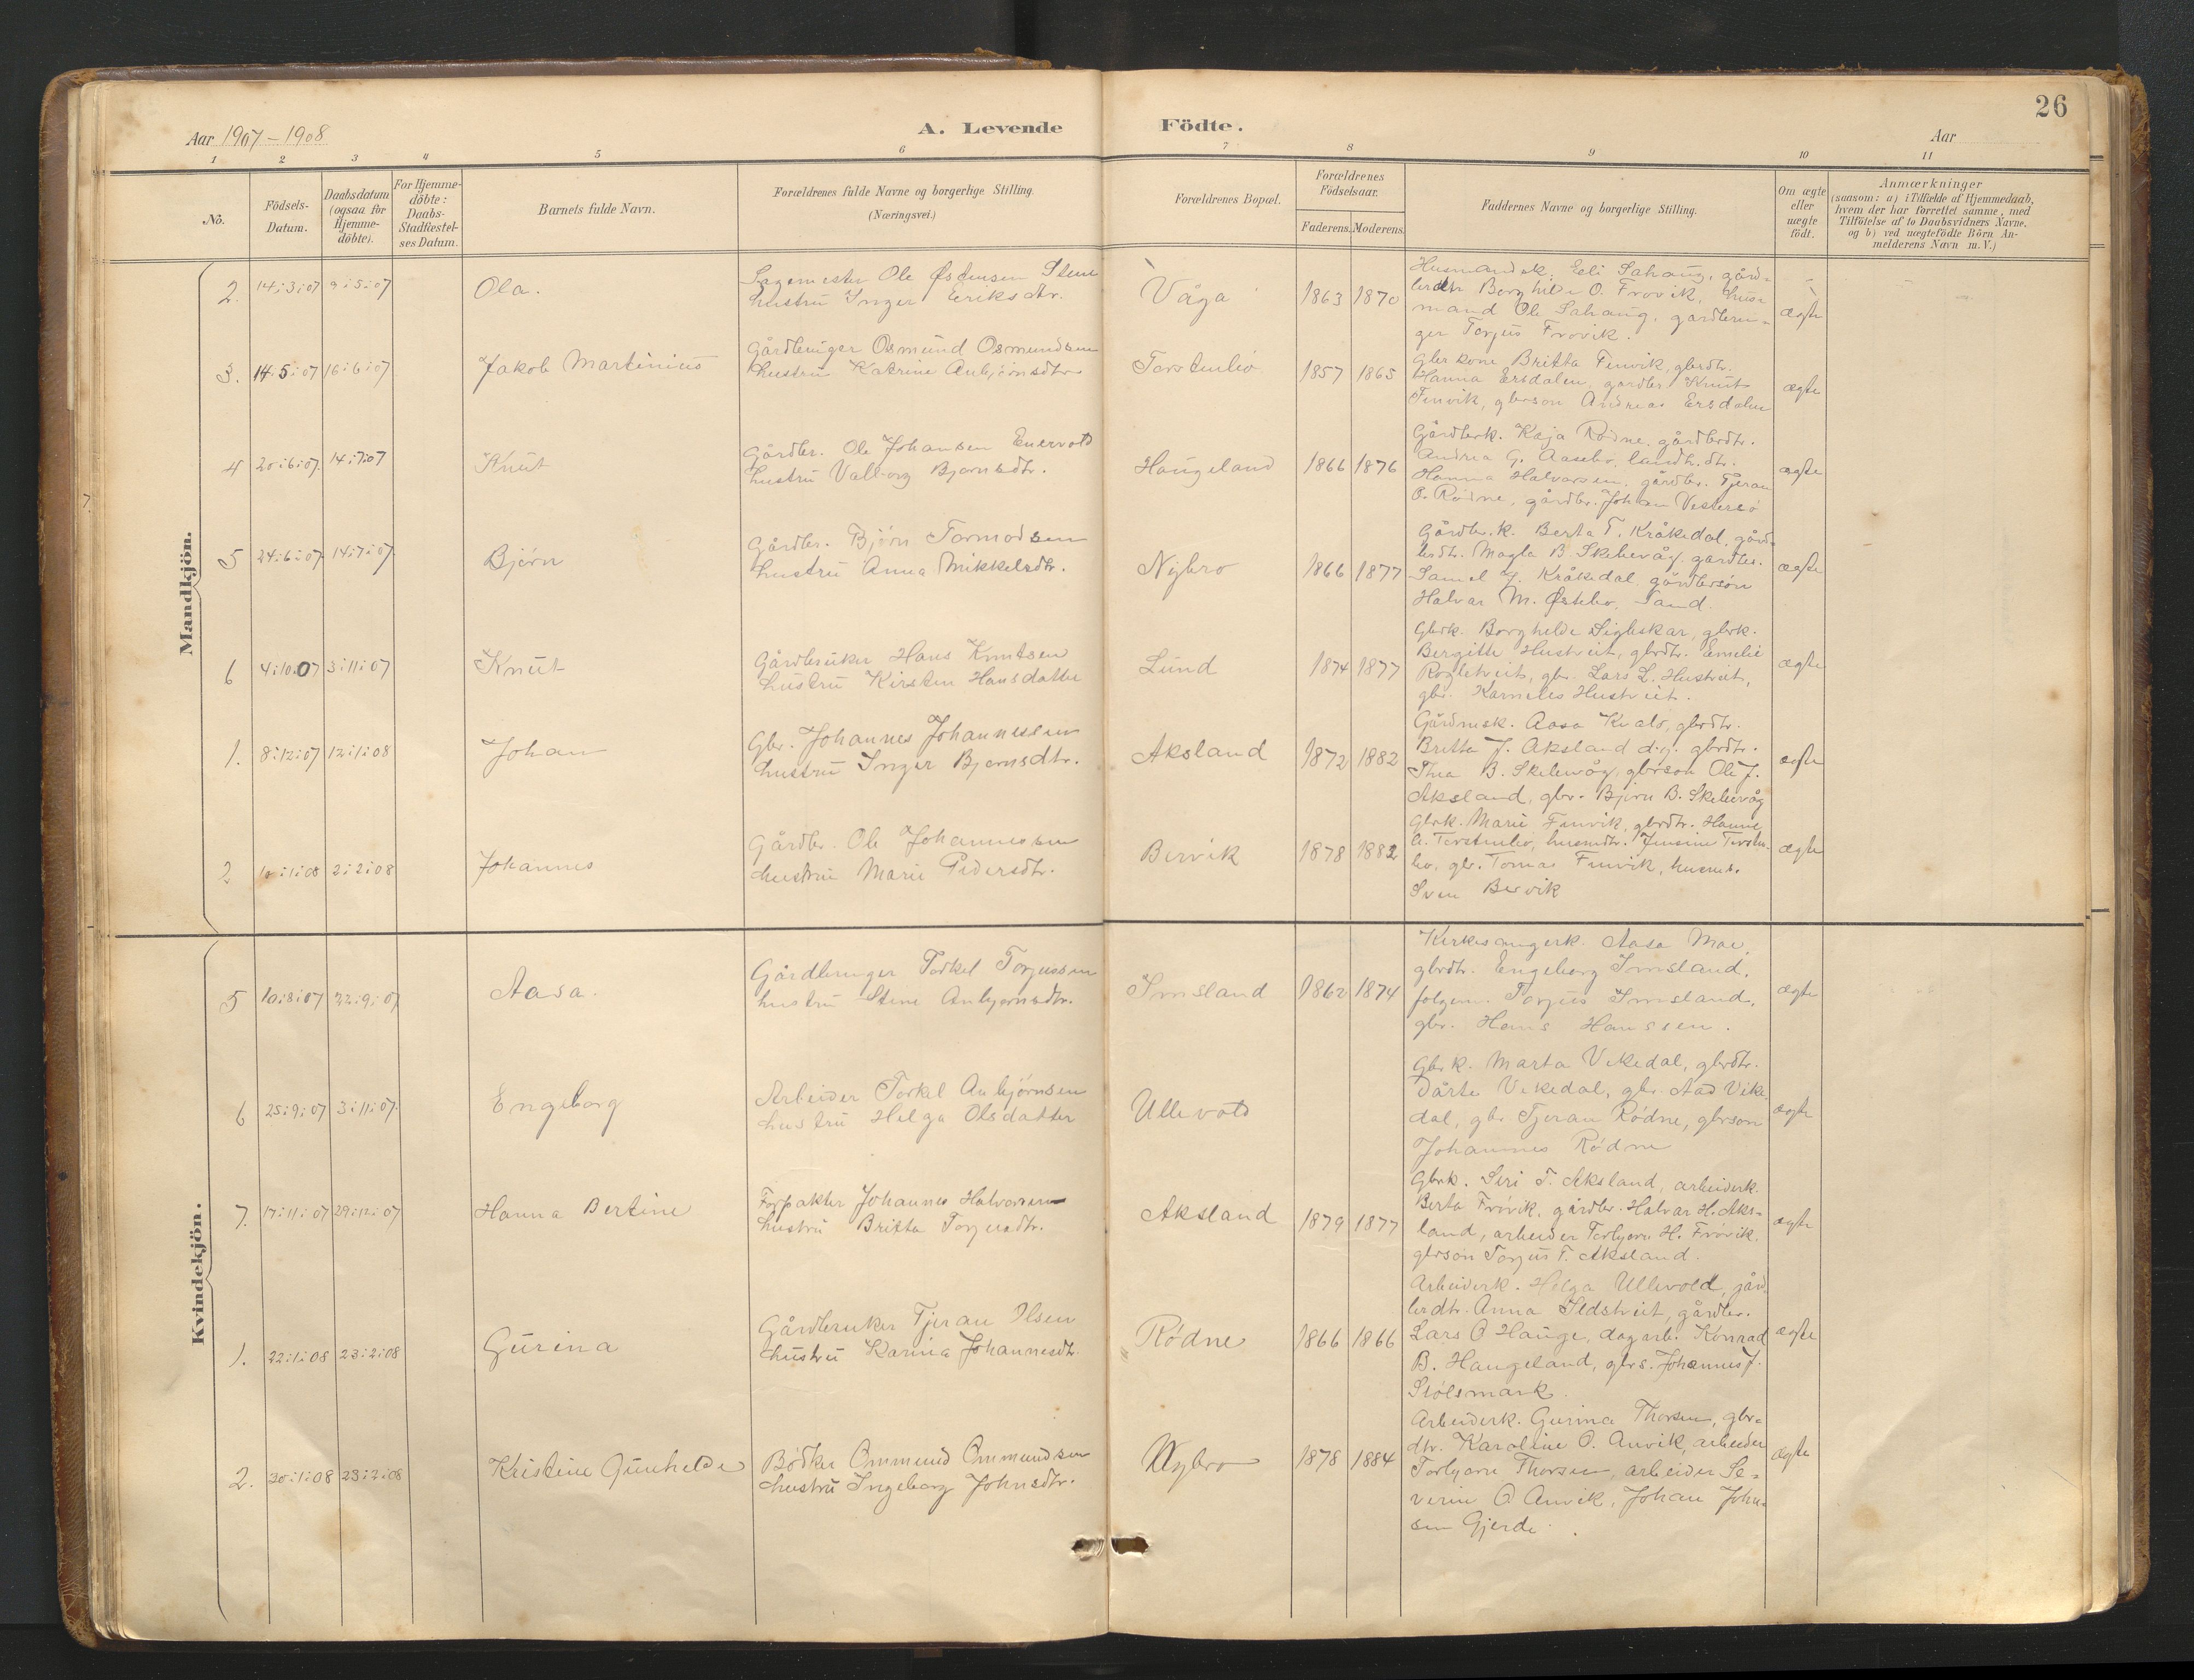 26
Aar 1907 - 1908
A. Levende Födte.
Aar
1 2 3 4 5 6 7 8 9 10 11
No.
Födsels-
Datum.
Daabsdatum
(ogsaa for
Hjemme-
döbte).
For Hjemme-
döbte:
Daabs-
Stadfæstel-
ses Datum.
Barnets fulde Navn.
Forældrenes fulde Navne og borgerlige Stilling.
(Næringsvei.)
Forældrenes Bopæl.
Forældrenes
Födselsaar.
Faderens. Moderens.
Faddernes Navne og borgerlige Stilling.
Om ægte
eller
uægte
födt.
Anmærkninger
(saasom: a) i Tilfælde af Hjemmedaab,
hvem der har forrettet samme, med
Tilföielse af to Daabsvidners Navne,
og b) ved uægtefödte Börn An-
melderens Navn m. V.)
Mandkjön.
2. 14:3:07 9:5:07 Ola.
Sagmester Ole Østensen Stene
hustru Inger Eriksdtr.
Våga 1863 1870
Husmandsk. Eli Sahaug, gård-
brdtr Borghilde O. Frøvik, hus-
mand Ole Sahaug, gardbru-
ger Torjus Frøvik.
ægte
3. 14:5:07 16:6:07 Jakob Martinius
Gårdbruger Osmund Osmundsen
hustru Katrine Anbjørnsdtr.
Torstenbø 1857 1865
Gbr kone Britta Finvik, gbrdtr.
Hanna Ersdalen, gardbr Knut
Finvik, gbrson Andreas Ersdalen
ægte
4 20:6:07. 14:7:07 Knut
Gårdbr. Ole Johansen
hustru Valborg Bjørnsdtr.
Haugeland 1866 1876
Gårdbrk. Kaja Rødne, gårdbrdtr.
Andrea G. Aasebø,
Hanna Halvorsen, gårdbr. Tjeran
O. Rødne, gårdbr. Johan Vestersø
ægte
5 24:6:07. 14:7:07. Bjørn
Gårdbr. Bjørn Tormodsen
hustru Anna Mikkelsdtr.
Nybro 1866 1877
Gårdbr. k. Berta T. Kråkedal, gård-
brdtr. Magla B. Skeievåg, gardbr.
Samel J. Kråkedal, gårdbrsøn
Halvar M. Østebø, Sand.
ægte
6 4:10:07 3:11:07 Knut
Gårdbruker Hans Knutsen
hustru Kirsten Hansdatter
Lund 1874 1877
Gbrk. Borghilde Digheskar, gbrk.
Bergitte Hustveit, gbrdtr. Emelie
Rogletveit, gbr. Lars L. Hustveit,
gbr. Karneles Hustveit.
ægte
1. 8:12:07 12:1:08 Johan
Gbr. Johannes Johannessen
hustru Inger Bjørnsdtr.
Aksland 1872 1882
Gårdmsk. Aasa Kvalø, gbrdtr.
Britta J. Aksland d.y. gbrdtr.
Thea B. Skeievåg, gbrson Ole J.
Aksland, gbr. Bjørn B. Skeievåg
ægte
2 10:1:08 2:2:08 Johannes
Gårdbr. Ole Johannessen
hustru Marie Pedersdtr.
Bervik 1878 1882
Gbrk. Marie Finvik, gbrdtr. Hanne
O. Torstenbø, husmdtr. Jensine Torsten-
bø, gbr. Tomas Finvik, husmd.
Sven Bervik
ægte
Kvindekjön.
5 10:8:07 22:9:07 Aasa.
Gårdbruger Torkel Torjussen
hustru Stine Anbjørnsdtr.
Imsland 1862 1874
Kirkesangerk. Aasa Moe,
gbrdtr. Engeborg Imsland,
folgem. Torjus Imsland,
gbr. Hans Hanssen.
ægte
6 25:9:07 3:11:07. Engeborg
Arbeider Torkel Anbjørnsen
hustru Helga Olsdatter
Ullevold
Gbrk. Marta Vikedal, gbrdtr.
Dårte Vikedal, gbr. Aad Vike-
dal, gbr Tjeran Rødne, gbrson
Johannes Rødne
ægte
7. 17:11:07 29:12:07 Hanna Bertine
Forpakter Johannes Halvorsen
hustru Britta Torjusdtr.
Aksland 1879 1877
Gbrk. Siri T. Aksland, arbeiderk.
Berta Frøvik, gårdbr. Halvar H. Aks-
land, arbeider Torbjørn H. Frøvik,
gbrson Torjus T. Aksland.
ægte
1. 22:1:08 23:2:08 Gurina
Gårdbruker Tjeran Olsen
hustru Karina Johannesdtr.
Rødne 1866 1866
Arbeiderk. Helga Ullevold, gård-
brdtr. Anna Ildstveit, gårdbr.
Lars O Hauge, dagarb. Konrad
B. Haugeland, gbrs. Johannes J.
Stølsmark.
ægte
2. 30:1:08 23:2:08 Kristine Gunhelde
Bødker Ommund Ommundsen
hustru Ingeborg Johnsdtr.
Nybro 1878 1884
Arbeiderk. Gurina Thorsen, gbr-
dtr. Karoline O. Anvik, arbeider
Torbjørn Thorsen, arbeider Se-
verin O Anvik, Johan John-
sen Gjerde.
ægte